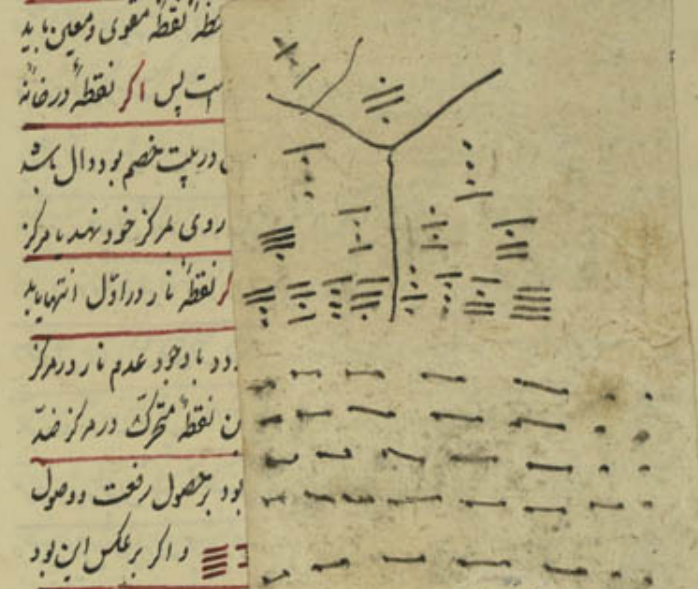 نقطه نقطه مقوی و معین باید
است پس اگر نقطه در خانه
در بیت خصم بود دال باشد
روی بمرکز خود نهد یا مرکز
اگر نقطه نار در اول انتها یابد
با وجود عدم نار در مرکز
نقطه متحرک در مرکز ضد
بود بر حصول رفعت و وصول
و اگر بر عکس این بود